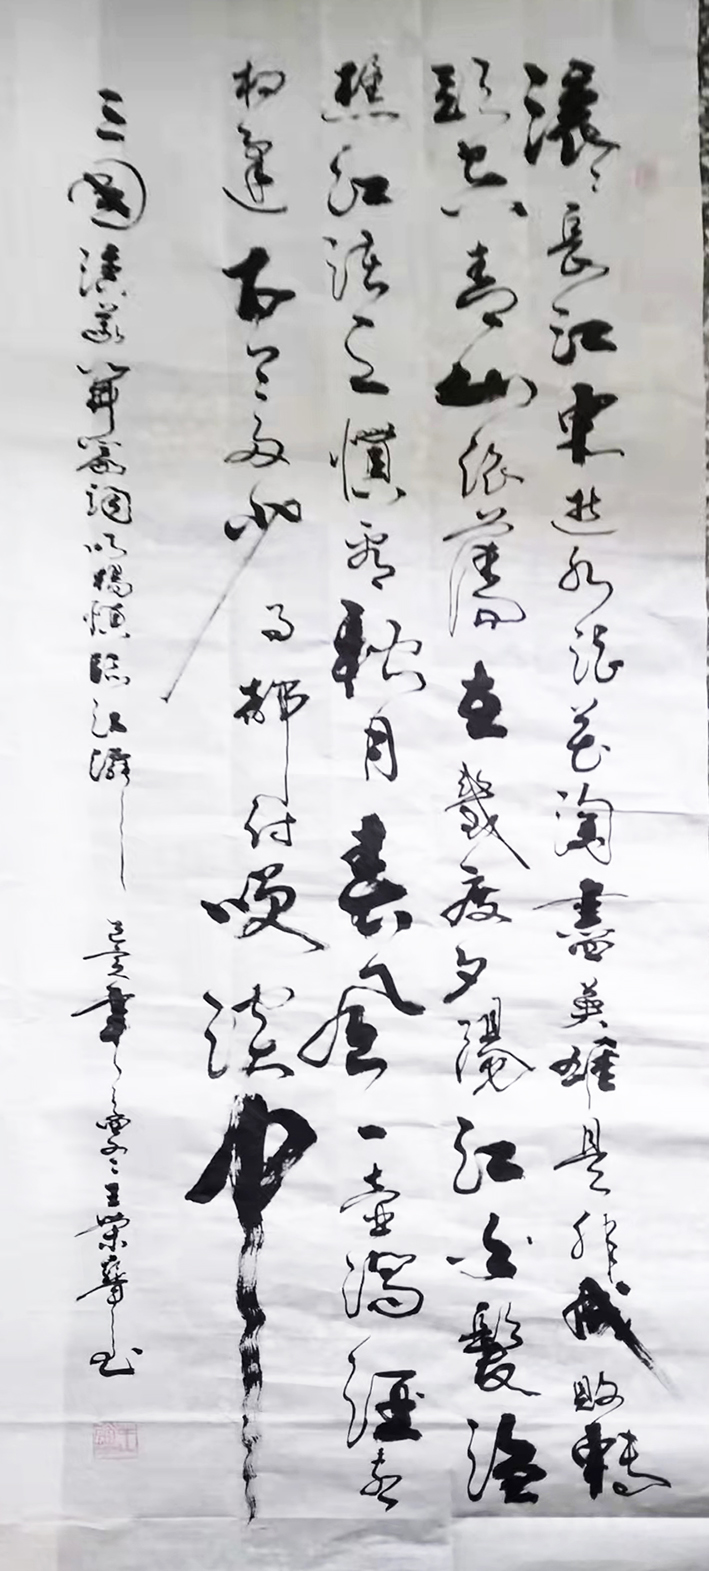 滚〻长江东逝水浪花淘尽英雄是非成败转
头空青山依旧在几度夕阳红白发渔
樵江渚上惯看秋月春风一壶浊酒喜
相逢古今多少事都付笑谈中
三国演义开篇词明杨慎临江仙